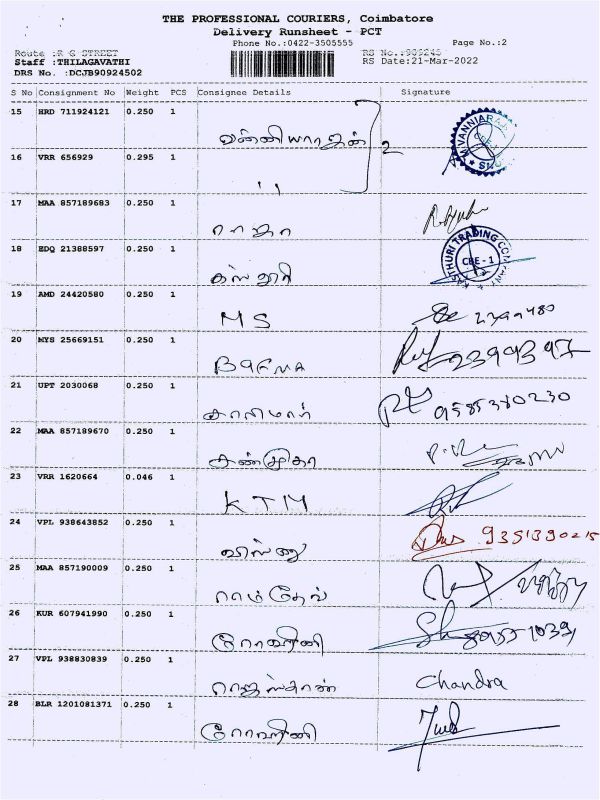 THE PROFESSIONAL COURIERS, Coimbatore
Delivery Runsheet - PCT
Phone No.:0422-3505555
Page No.:2
Route :R G STREET
RS No.:909245
Staff :THILAGAVATHI
RS Date:21-Mar-2022
DRS No. :DCJB90924502
S No Consignment No Weight PCS Consignee Details Signature
15 HRD 711924121 0.250 1 வன்னியராஜன் 2
16 VRR 656929 0.295 1 ''
17 MAA 857189683 0.250 1 ராஜா
18 EDQ 21388597 0.250 1 கஸ்தூரி KASTHURI TRADING COMPANY CBE - 1
19 AMD 24420580 0.250 1 MS
20 MYS 25669151 0.250 1 2399397
21 UPT 2030068 0.250 1 9585380230
22 MAA 857189670 0.250 1
23 VRR 1620664 0.046 1 KTM
24 VPL 938643852 0.250 1 விஸ்ணு
25 MAA 857190009 0.250 1 ராம்தேவ்
26 KUR 607941990 0.250 1 ரோஹிணி
27 VPL 938830839 0.250 1 ராஜஸ்தான் Chandra
28 BLR 1201081371 0.250 1 ரோஹிணி